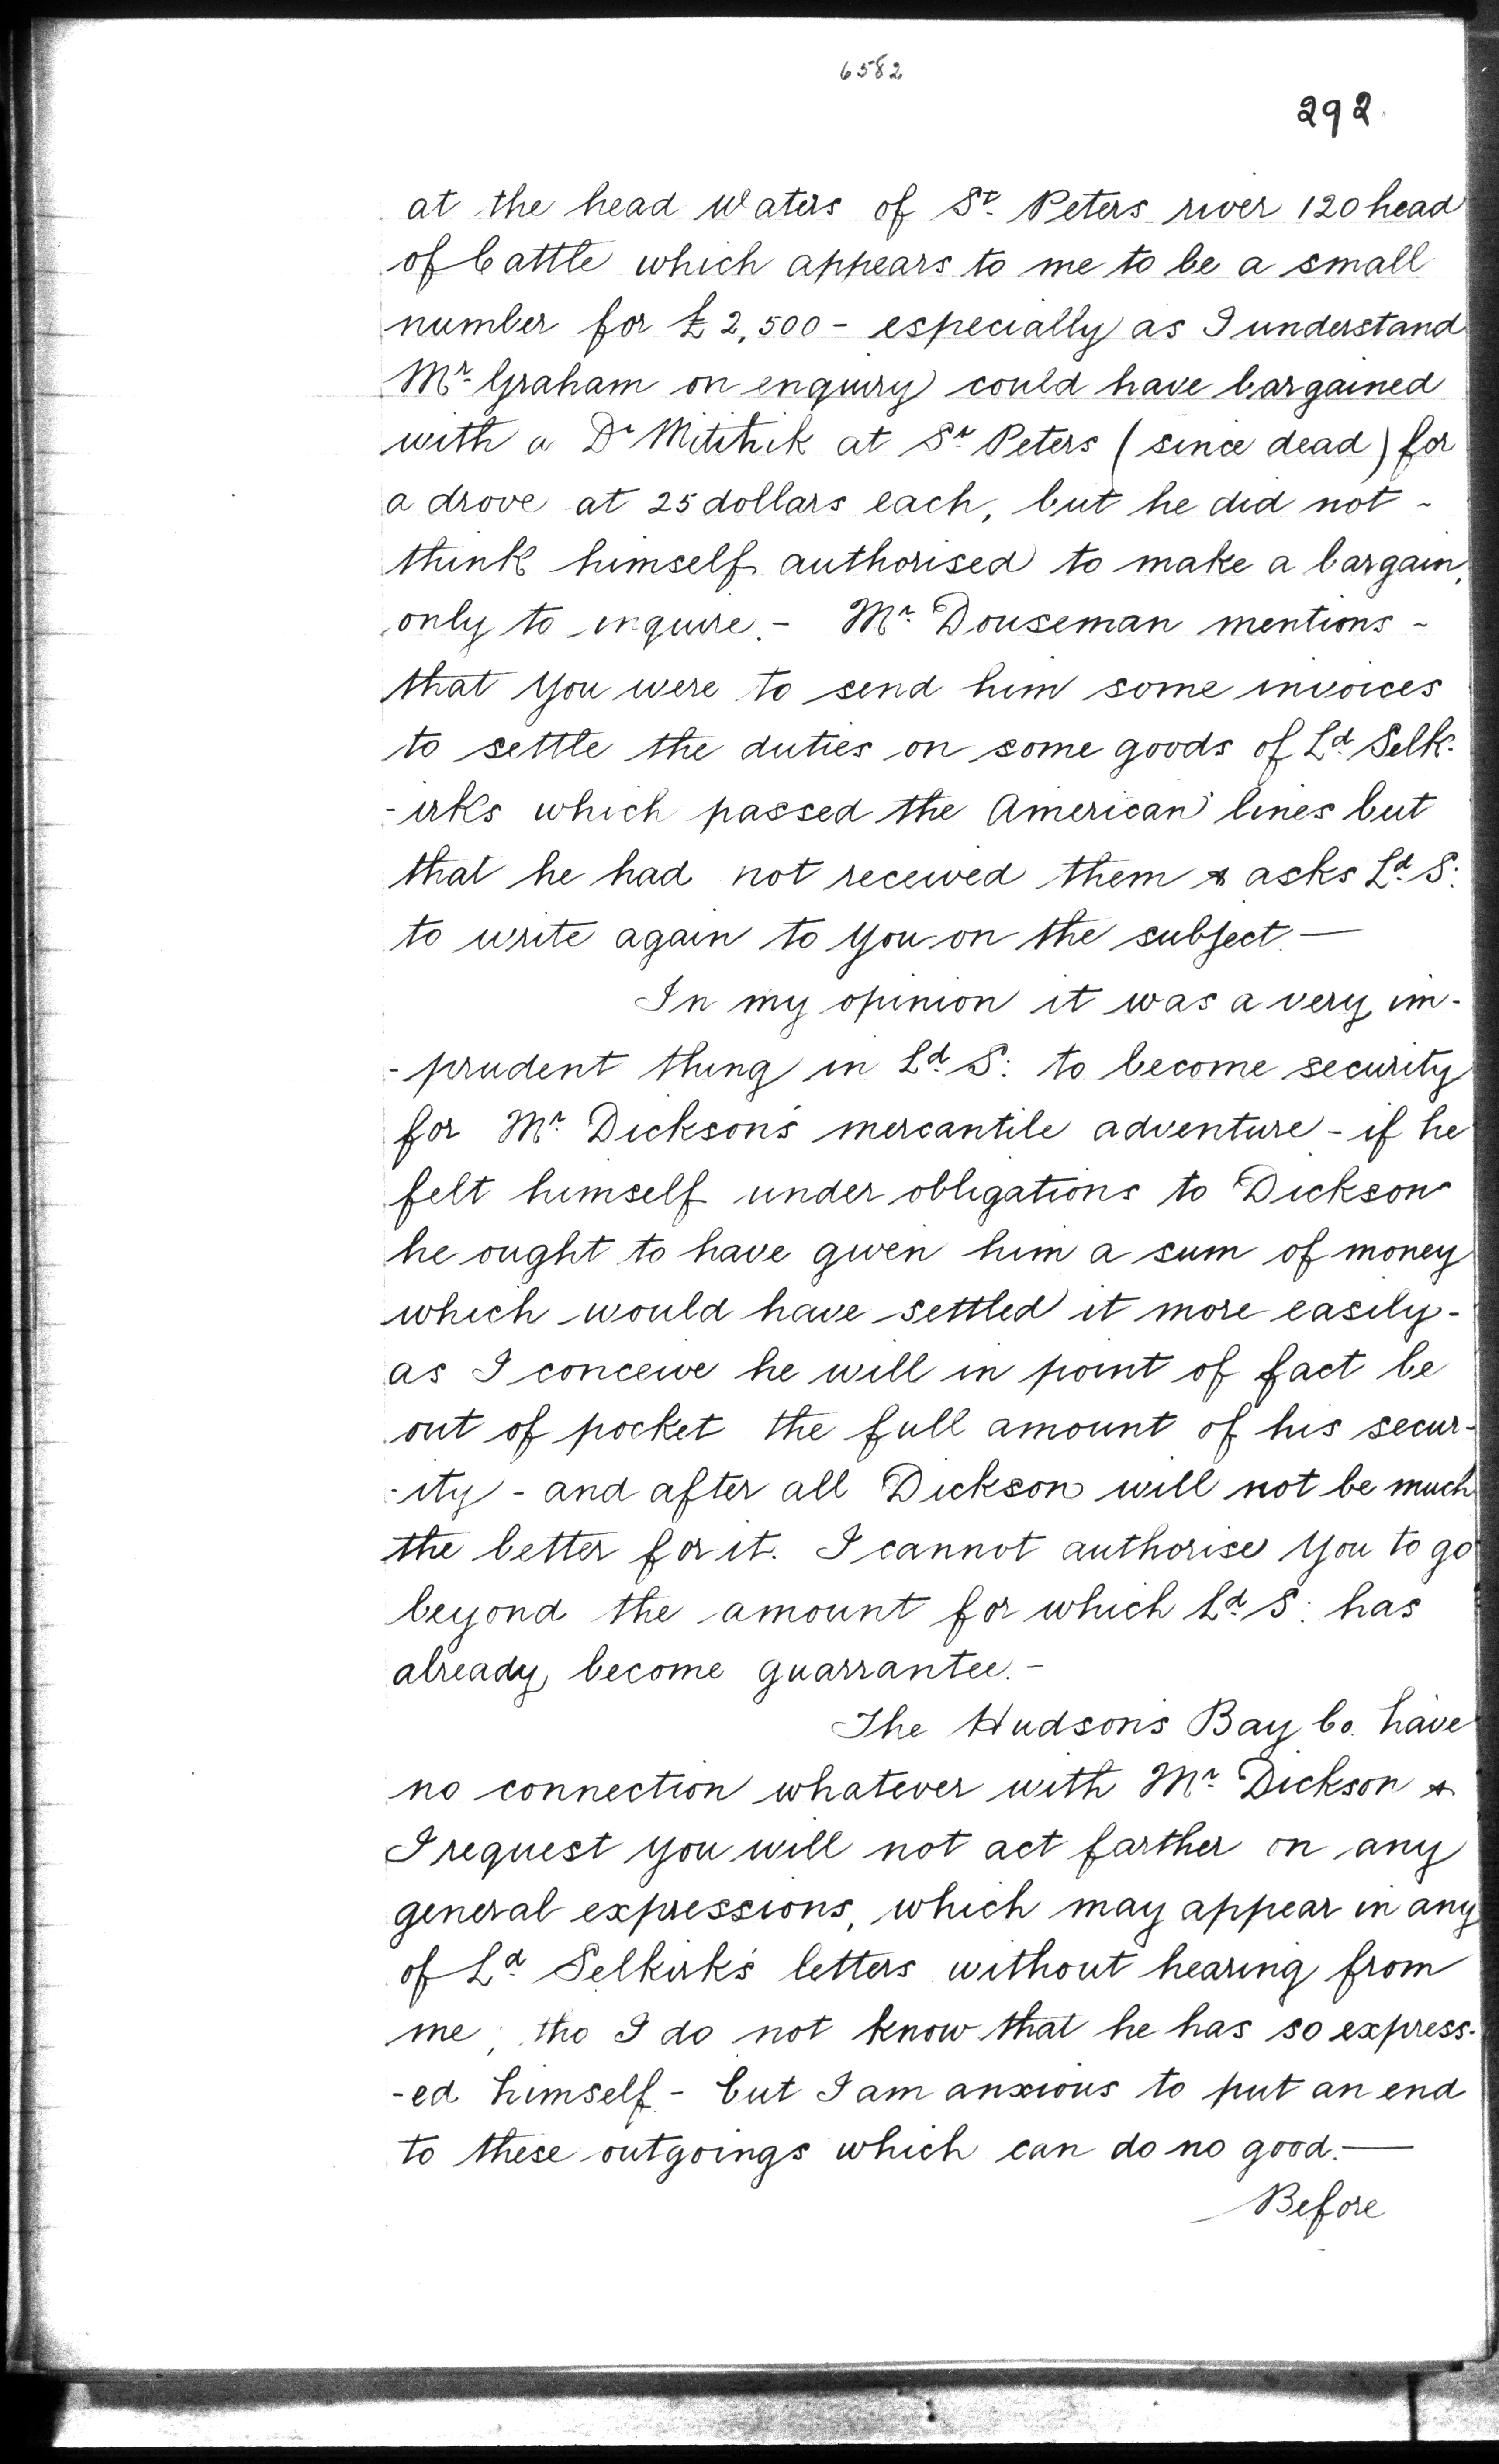 6582
292.
at the head Waters of St. Peters river 120 head
of Cattle which appears to me to be a small
number for £2,500 - especially as I understand
Mr. Graham on enquiry could have bargained
with a Dr Mititik at St. Peters (since dead) for
a drove at 25 dollars each, but he did not -
think himself authorised to make a bargain,
only to inquire. - Mr. Douseman mentions -
that you were to send him some invoices
to settle the duties on some goods of Ld. Selk-
-irks which passed the American lines but
that he had not received them & asks Ld. S:
to write again to you on the subject. —
In my opinion it was a very im-
-prudent thing in Ld. S: to become security
for Mr. Dickson's mercantile adventure - if he
felt himself under obligations to Dickson
he ought to have given him a sum of money
which would have settled it more easily -
as I conceive he will in point of fact be
out of pocket the full amount of his secur-
-ity - and after all Dickson will not be much
the better for it. I cannot authorise you to go
beyond the amount for which Ld. S: has
already become guarrantee. -
The Hudson's Bay Co. have
no connection whatever with Mr. Dickson &
I request you will not act farther on any
general expressions, which may appear in any
of Ld. Selkirk's letters without hearing from
me; tho I do not know that he has so express-
-ed himself - but I am anxious to put an end
to these outgoings which can do no good. —
Before